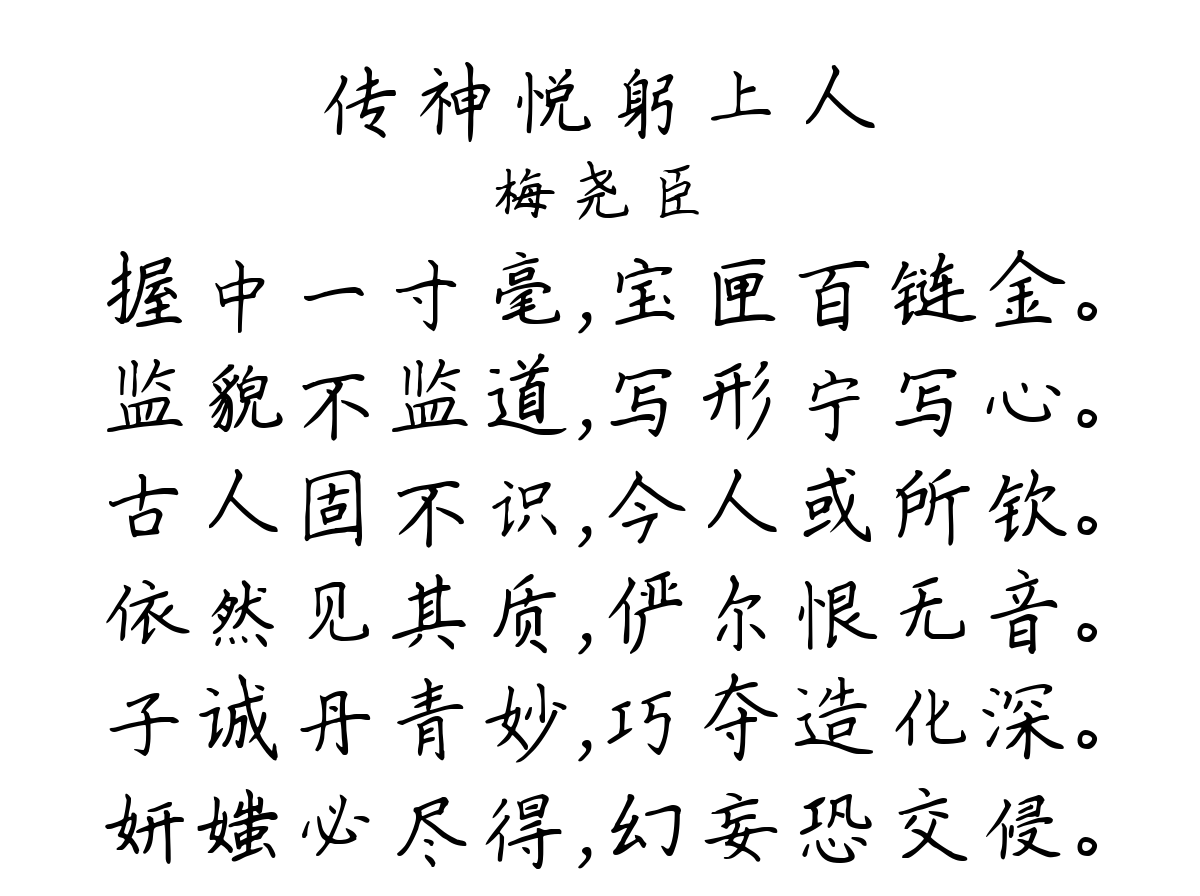 传神悦躬上人
梅尧臣
握中一寸毫,宝匣百链金。
监貌不监道,写形宁写心。
古人固不识,今人或所钦。
依然见其质,俨尔恨无音。
子诚丹青妙,巧夺造化深。
妍媸必尽得,幻妄恐交侵。